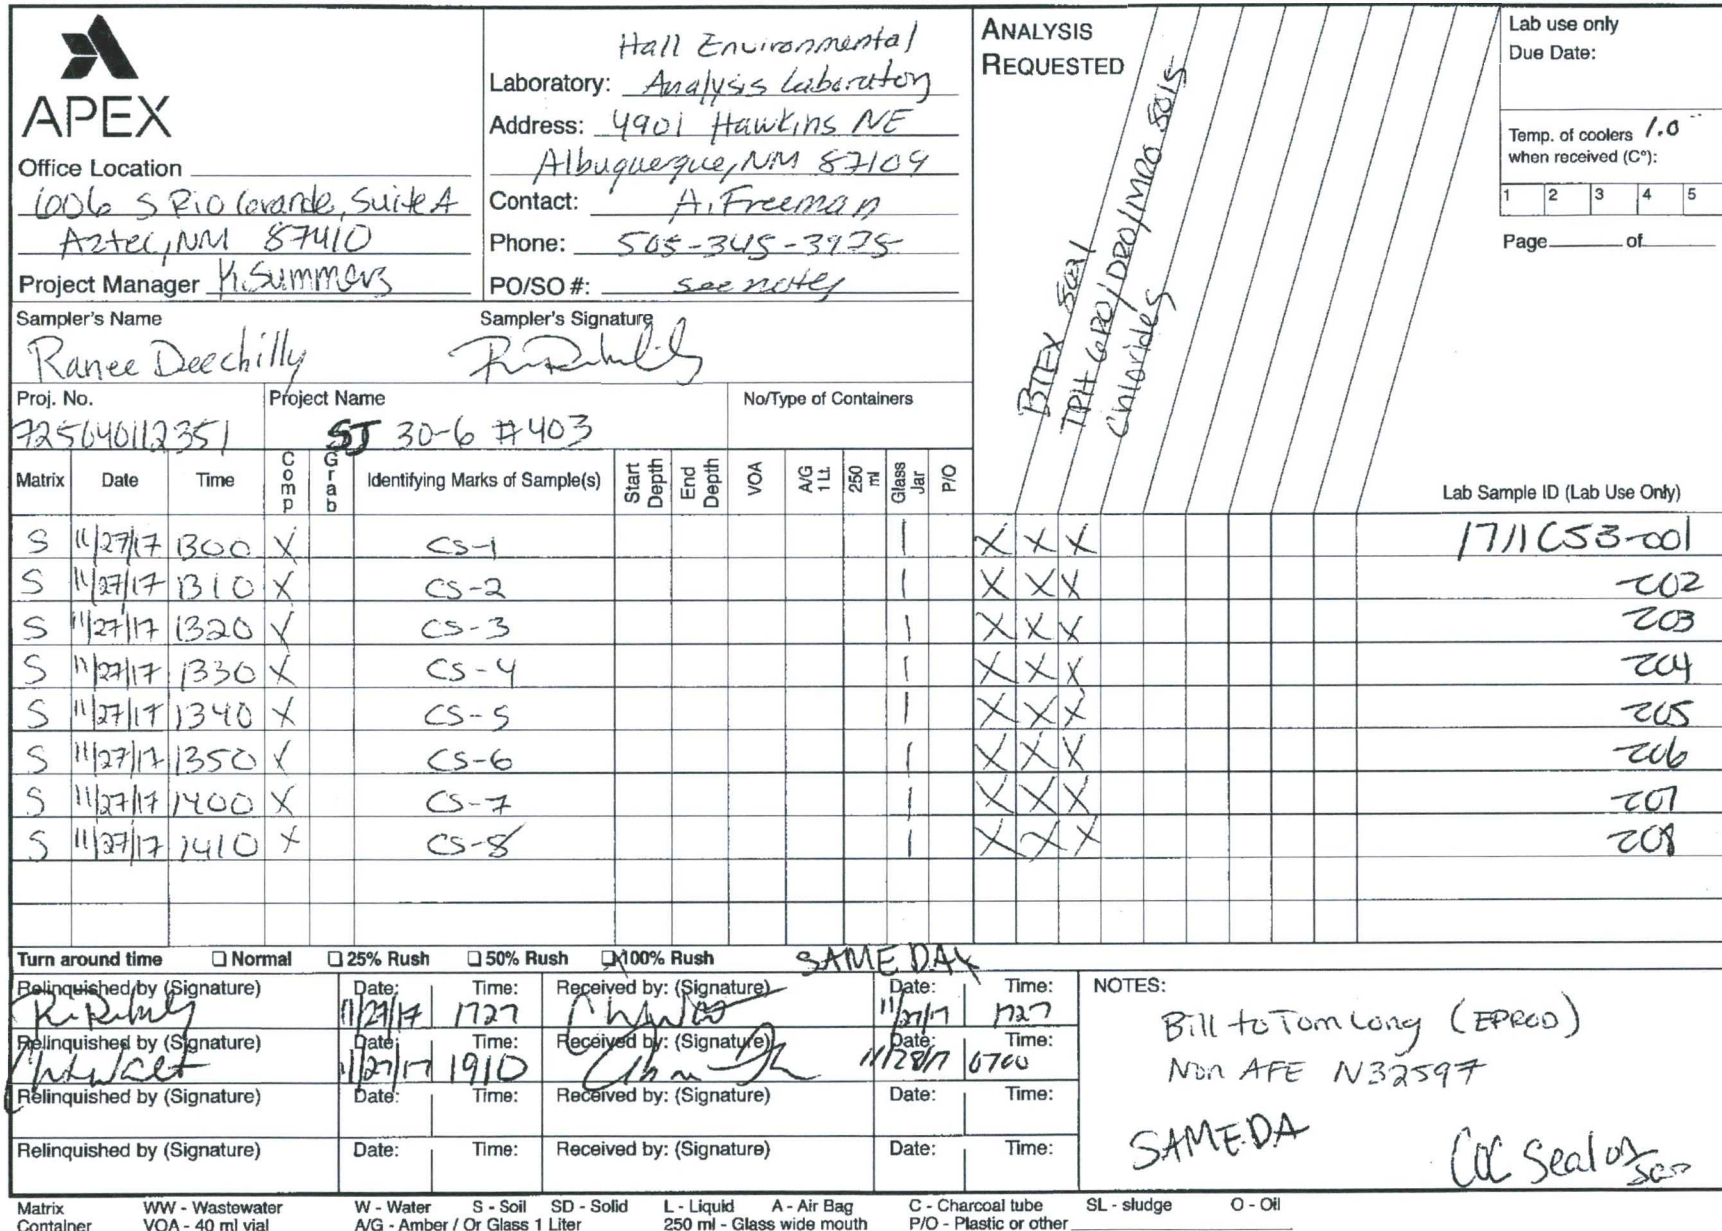 APEX
Office Location
606 S Rio Grande, Suite A
Aztec, NM 87410
Project Manager K. Summers
Hall Environmental
Laboratory: Analysis Laboratory
Address: 4901 Hawkins NE
Albuquerque, NM 87109
Contact: A. Freeman
Phone: 505-345-3975
PO/SO #: see notes
ANALYSIS
REQUESTED
BTEX 8021
TPH GRO/DRO/MRO 8015
Chlorides
Lab use only
Due Date:
Temp. of coolers 1.0
when received (C°):
1 2 3 4 5
Page of
Sampler's Name
Ranee Deechilly
Sampler's Signature
Proj. No.
725040112351
Project Name
SJ 30-6 #403
No/Type of Containers
Matrix Date Time Comp Grab Identifying Marks of Sample(s) Start Depth End Depth VOA A/G 1 Lt. 250 ml Glass Jar P/O Lab Sample ID (Lab Use Only)
S 11/27/17 1300 X CS-1 1 X X X 1711C53-001
S 11/27/17 1310 X CS-2 1 X X X -002
S 11/27/17 1320 X CS-3 1 X X X -003
S 11/27/17 1330 X CS-4 1 X X X -004
S 11/27/17 1340 X CS-5 1 X X X -005
S 11/27/17 1350 X CS-6 1 X X X -006
S 11/27/17 1400 X CS-7 1 X X X -007
S 11/27/17 1410 X CS-8 1 X X X -008
Turn around time ☐ Normal ☐ 25% Rush ☐ 50% Rush ☒ 100% Rush SAME DAY
Relinquished by (Signature) Date: 11/27/17 Time: 1727 Received by: (Signature) Date: 11/27/17 Time: 1727
Relinquished by (Signature) Date: 11/27/17 Time: 1910 Received by: (Signature) Date: 11/28/17 Time: 0700
Relinquished by (Signature) Date: Time: Received by: (Signature) Date: Time:
Relinquished by (Signature) Date: Time: Received by: (Signature) Date: Time:
NOTES:
Bill to Tom Long (EPROD)
Non AFE N32597
SAME DA
COC Seal on
Matrix WW - Wastewater W - Water S - Soil SD - Solid L - Liquid A - Air Bag C - Charcoal tube SL - sludge O - Oil
Container VOA - 40 ml vial A/G - Amber / Or Glass 1 Liter 250 ml - Glass wide mouth P/O - Plastic or other